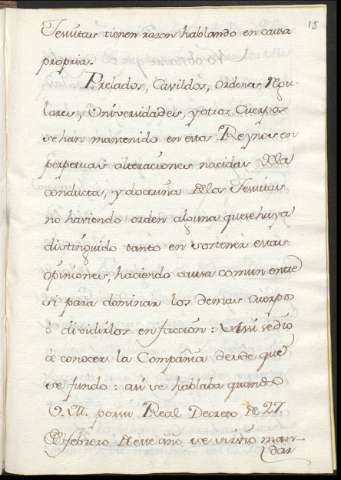 15
Jesuitas tienen razon hablando en causa
propria.
Prelados, Cavildos, ordenes regu-
lares, Universidades, y otros Cuerpos
se han mantenido en estos Reynos en
perpetuas alteraciones nacidas de la
conducta, y doctrina de los Jesuitas
no haviendo orden alguna que se haya
distinguido tanto en sostener estas
opiniones, haciendo causa comun entre
si para dominar los demas Cuerpos
o dividirlos en faccion: Asi se dio
à conocer la Compañia desde que
se fundo: asi se hablaba quando
V. M. por su Real Decreto de 27,
de febrero de este año se sirvió man-
dar